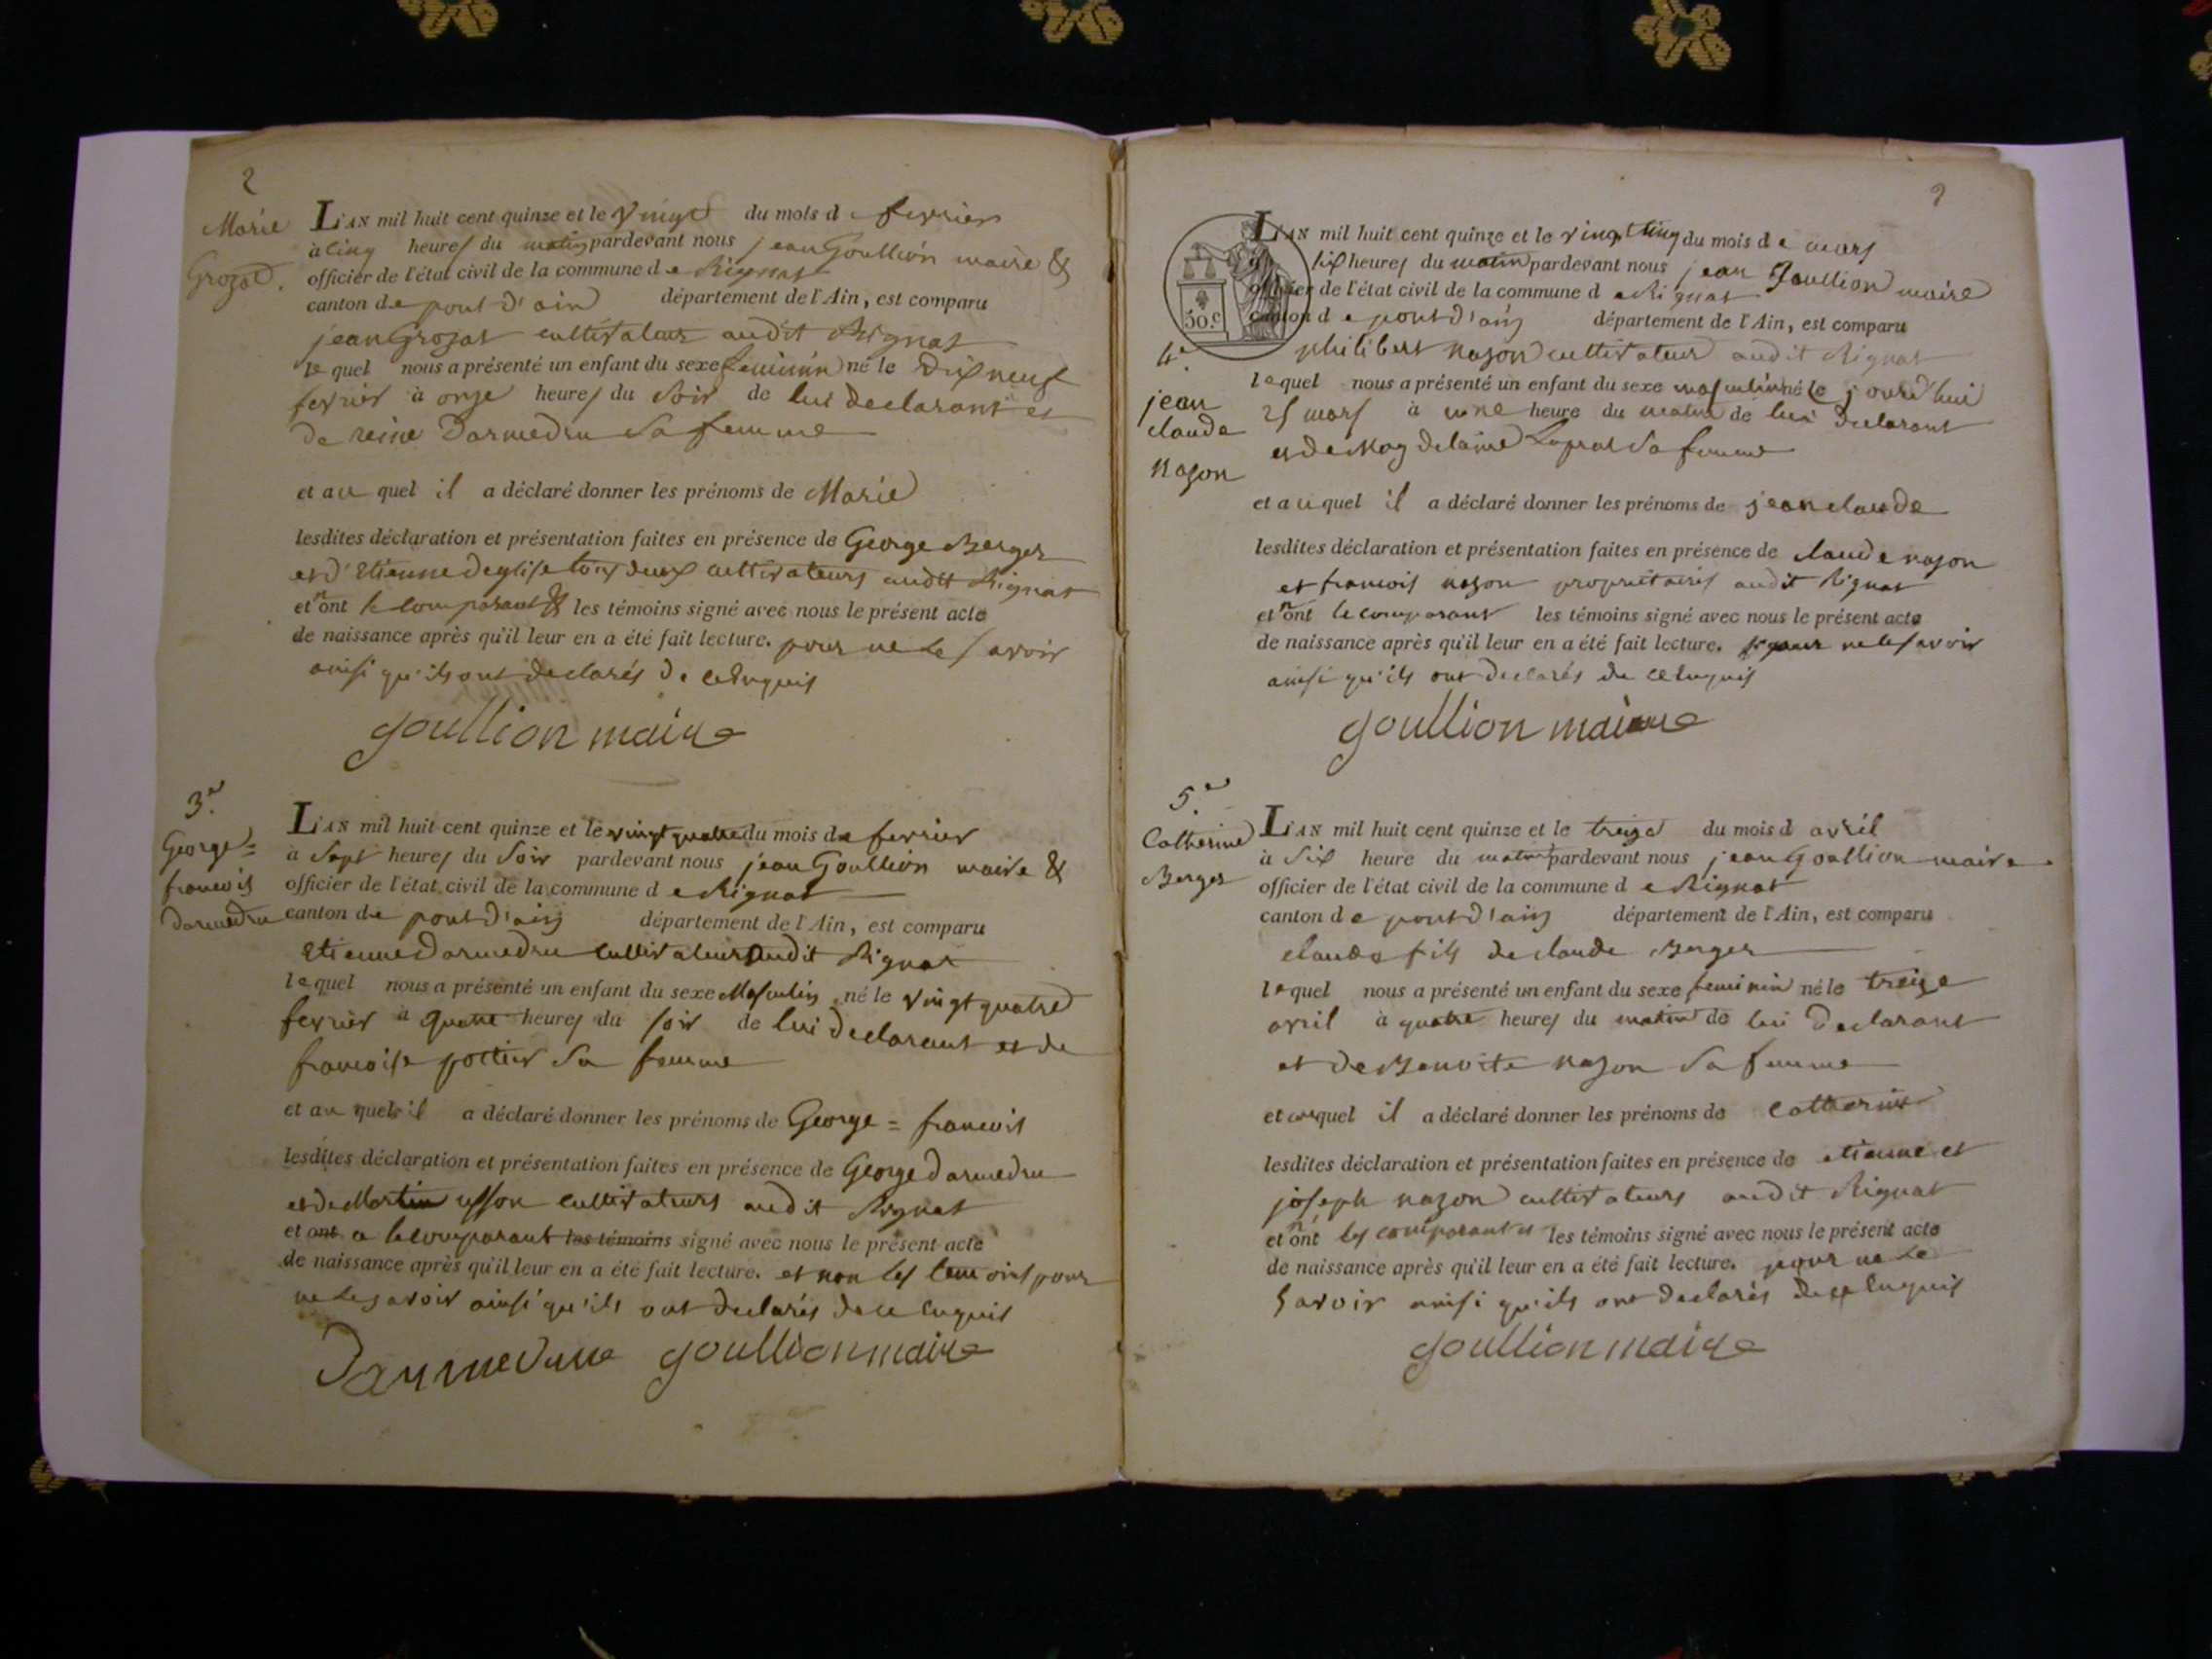 2
Marie
Grozat.
L'AN mil huit cent quinze et le vingt du mois de fevrier
à cinq heures du matin pardevant nous jean Goullion maire &
officier de l'état civil de la commune de Rignat
canton de pont d'ain département de l'Ain, est comparu
jean Grozat cultivateur audit Rignat
le quel nous a présenté un enfant du sexe feminin né le dix neuf
fevrier à onze heures du soir de lui declarant et
de reine Darmedru sa femme
et au quel il a déclaré donner les prénoms de Marie
lesdites déclaration et présentation faites en présence de George Berger
et d'Etienne Deglise tous deux cultivateurs audit Rignat
et n'ont le comparant & les témoins signé avec nous le présent acte
de naissance après qu'il leur en a été fait lecture. pour ne le savoir
ainsi qu'ils ont declarés de ce Enquis
goullion maire
3.e
George=
francois
Darmedru
L'AN mil huit cent quinze et le vingt quatre du mois de fevrier
à sept heures du soir pardevant nous jean Goullion maire &
officier de l'état civil de la commune de Rignat
canton de pont d'ain département de l'Ain, est comparu
Etienne Darmedru cultivateur audit Rignat
le quel nous a présenté un enfant du sexe Masculin né le vingt quatre
fevrier à quatre heures du soir de lui declarant et de
francoise pottier sa femme
et au quel il a déclaré donner les prénoms de George = francois
lesdites déclaration et présentation faites en présence de George Darmedru
et de Martin usson cultivateurs audit Rignat
et ont a le comparant les témoins signé avec nous le présent acte
de naissance après qu'il leur en a été fait lecture. et non les temoins pour
ne le savoir ainsi qu'ils ont declarés de ce enquis
Darmedru goullion maire
30.c
4.e
jean
claude
Nazon
L'AN mil huit cent quinze et le vingt cinq du mois de mars
six heures du matin pardevant nous jean Goullion maire
officier de l'état civil de la commune de Rignat
canton de pont d'ain département de l'Ain, est comparu
philibert Nazon cultivateur audit Rignat
lequel nous a présenté un enfant du sexe masculin né le jourd'hui
25 mars à une heure du matin de lui declarant
et de Magdelaine Laprat sa femme
et au quel il a déclaré donner les prénoms de jean claude
lesdites déclaration et présentation faites en présence de claude nazon
et francois nazon propriétaires audit Rignat
et n'ont le comparant les témoins signé avec nous le présent acte
de naissance après qu'il leur en a été fait lecture. pour ne le savoir
ainsi qu'ils ont declarés de ce enquis
goullion maire
5.e
Catherine
Berger
L'AN mil huit cent quinze et le treize du mois d avril
à six heure du matin pardevant nous jean Goullion maire
officier de l'état civil de la commune de Rignat
canton de pont d'ain département de l'Ain, est comparu
claude fils de claude Berger
lequel nous a présenté un enfant du sexe feminin né le treize
avril à quatre heures du matin de lui declarant
et de Benoite nazon sa femme
et auquel il a déclaré donner les prénoms de catherine
lesdites déclaration et présentation faites en présence de etienne et
joseph nazon cultivateurs audit Rignat
et n'ont les comparant et les témoins signé avec nous le présent acte
de naissance après qu'il leur en a été fait lecture. pour ne le
savoir ainsi qu'ils ont declarés de ce enquis
goullion maire